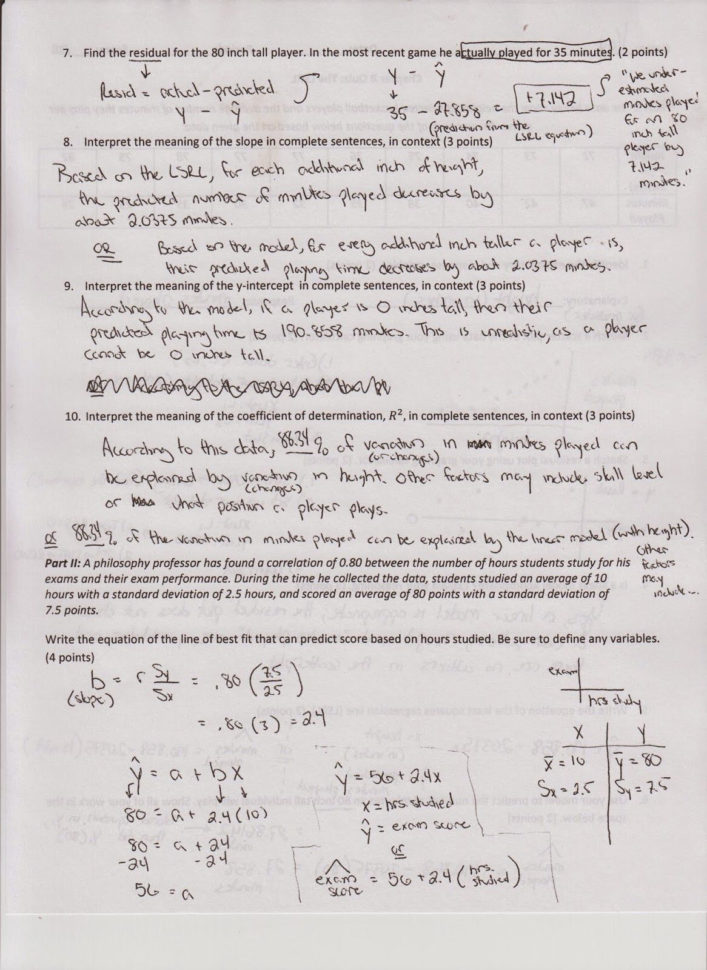 7. Find the residual for the 80 inch tall player. In the most recent game he actually played for 35 minutes. (2 points)
Resid = actual - predicted
y - ŷ
y - ŷ
35 - 27.858 = +7.142
(prediction from the LSRL equation)
"We under-
estimated
minutes played
for an 80
inch tall
player by
7.142
minutes."
8. Interpret the meaning of the slope in complete sentences, in context (3 points)
Based on the LSRL, for each additional inch of height,
the predicted number of minutes played decreases by
about 2.0375 minutes.
OR Based on the model, for every additional inch taller a player is,
their predicted playing time decreases by about 2.0375 minutes.
9. Interpret the meaning of the y-intercept in complete sentences, in context (3 points)
According to the model, if a player is 0 inches tall, then their
predicted playing time is 190.858 minutes. This is unrealistic, as a player
cannot be 0 inches tall.
10. Interpret the meaning of the coefficient of determination, R², in complete sentences, in context (3 points)
According to this data, 88.34% of variation in minutes played can
(or changes)
be explained by variation in height. Other factors may include skill level
(changes)
or what position a player plays.
or 88.34% of the variation in minutes played can be explained by the linear model (with height).
Other
factors
may
include...
Part II: A philosophy professor has found a correlation of 0.80 between the number of hours students study for his
exams and their exam performance. During the time he collected the data, students studied an average of 10
hours with a standard deviation of 2.5 hours, and scored an average of 80 points with a standard deviation of
7.5 points.
Write the equation of the line of best fit that can predict score based on hours studied. Be sure to define any variables.
(4 points)
b = r Sy/Sx = .80 (7.5/2.5)
(slope)
= .80 (3) = 2.4
exam
hrs study
X Y
x̄ = 10 ȳ = 80
Sx = 2.5 Sy = 7.5
ŷ = a + bx
80 = a + 2.4(10)
80 = a + 24
-24 -24
56 = a
ŷ = 56 + 2.4x
x = hrs studied
ŷ = exam score
or
exam score = 56 + 2.4 (hrs. studied)